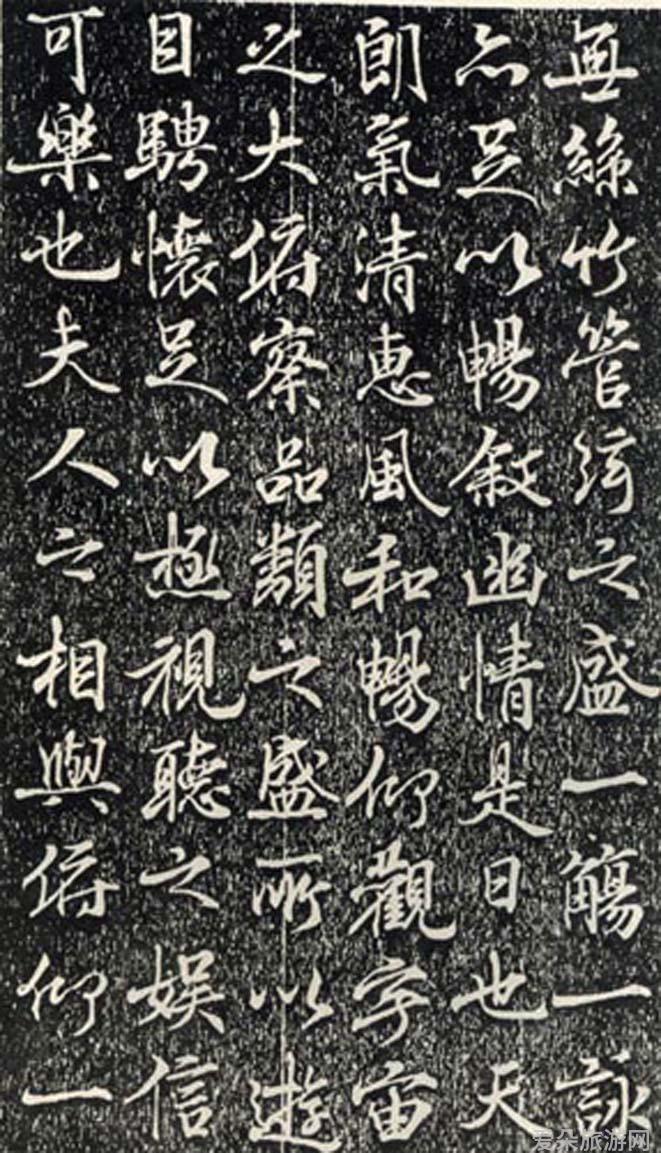 無絲竹管絃之盛一觴一詠
亦足以暢敘幽情是日也天
朗氣清惠風和暢仰觀宇宙
之大俯察品類之盛所以遊
目騁懷足以極視聽之娛信
可樂也夫人之相與俯仰一
爱朵旅游网